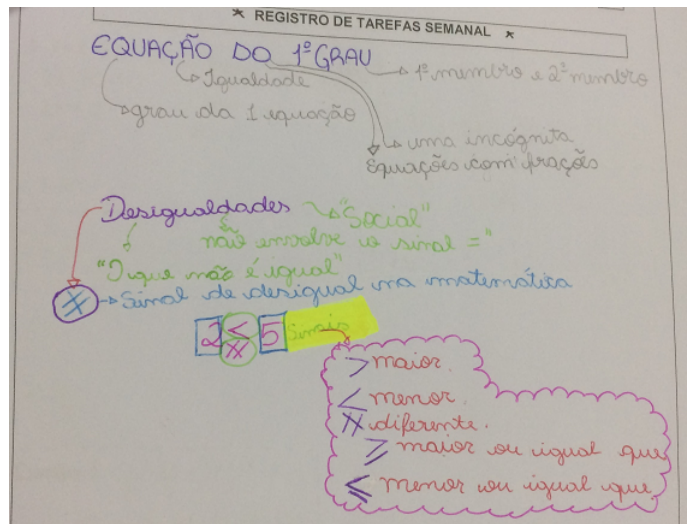 ★ REGISTRO DE TAREFAS SEMANAL ★
EQUAÇÃO DO 1º GRAU
Igualdade
1º membro e 2º membro
grau da 1 equação
uma incógnita
Equações com frações
Desigualdades "Social"
não envolve o sinal ="
"O que não é igual"
≠ Sinal de desigual na matemática
2 < 5 Sinais
≠
> maior.
< menor.
≠ diferente.
≥ maior ou igual que
≤ menor ou igual que